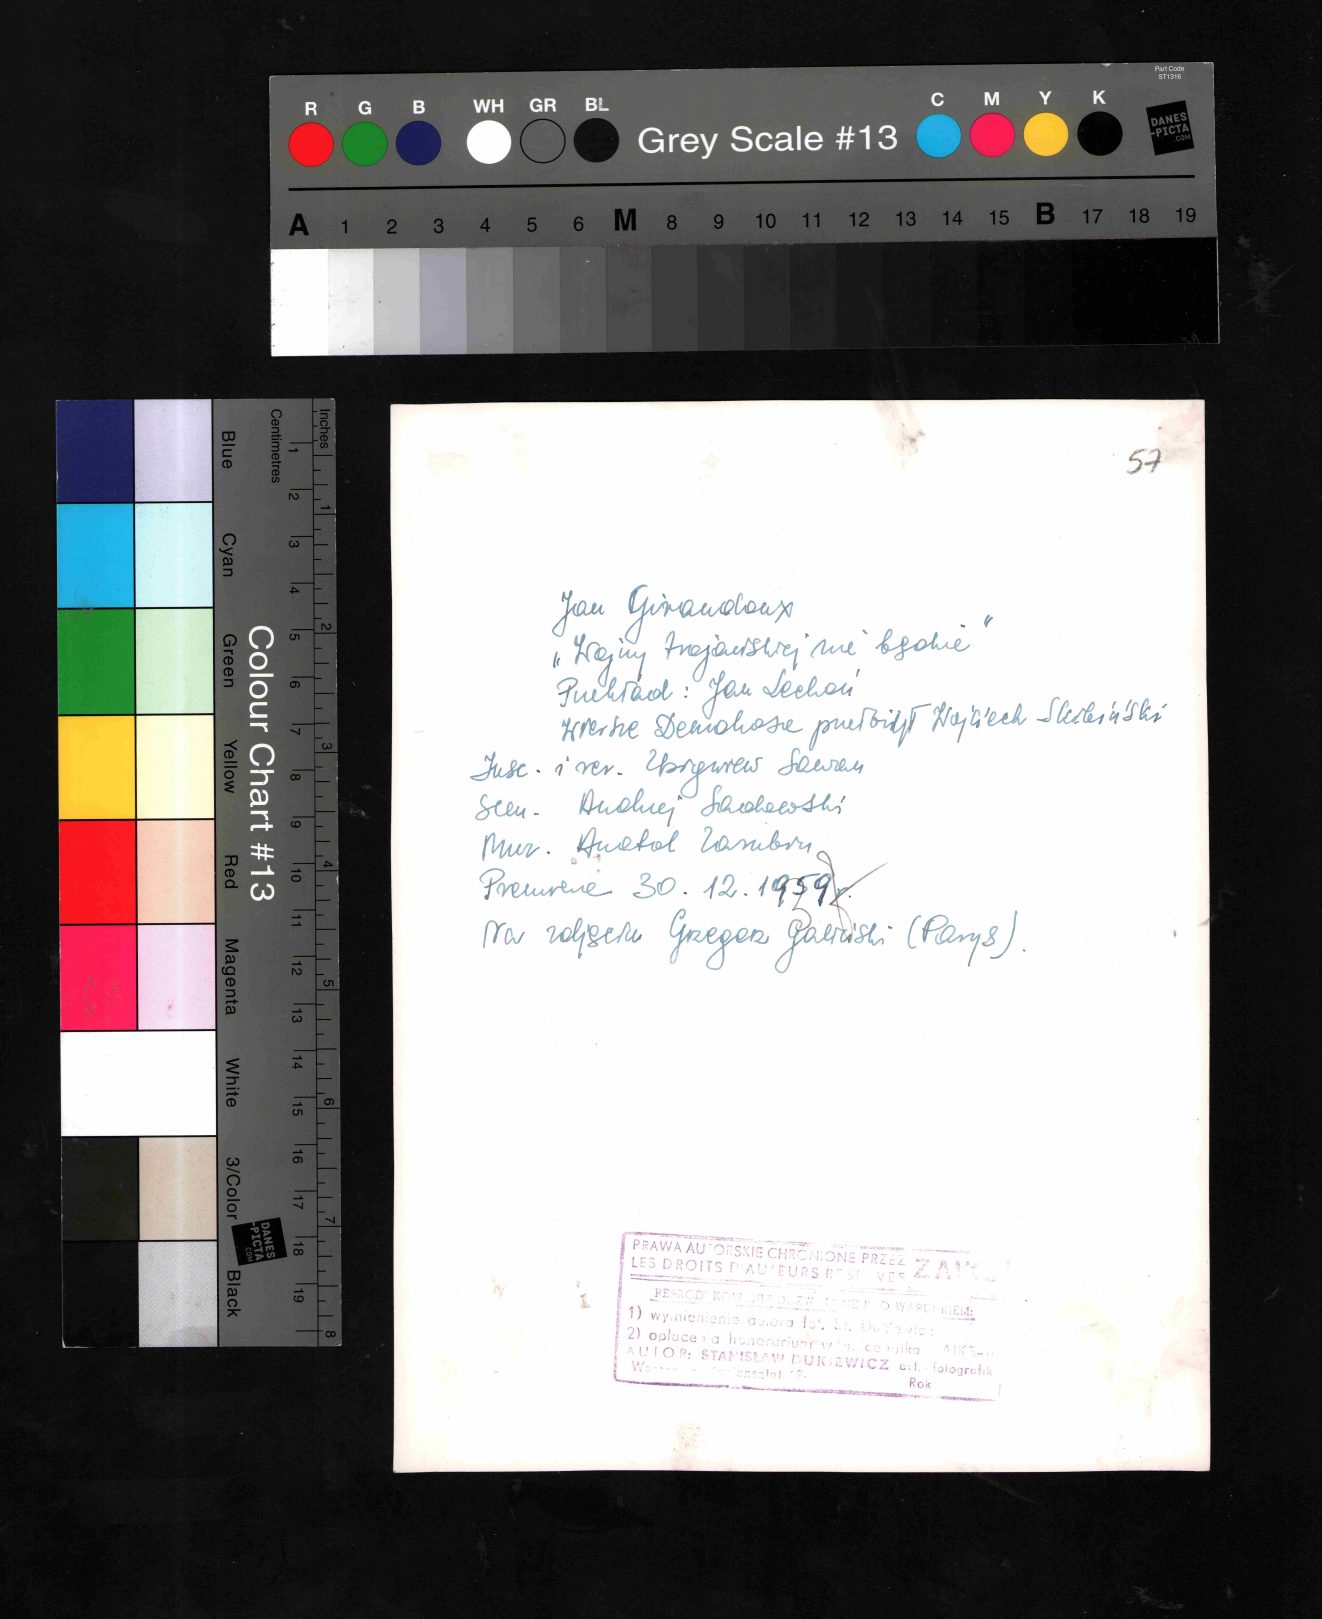 Part Code
ST1316
R G B WH GR BL
Grey Scale #13
C M Y K
DANES
-PICTA
.COM
A 1 2 3 4 5 6 M 8 9 10 11 12 13 14 15 B 17 18 19
Colour Chart #13
Blue
Cyan
Green
Yellow
Red
Magenta
White
3/Color
Black
Centimetres
1 2 3 4 5 6 7 8 9 10 11 12 13 14 15 16 17 18 19
Inches
1 2 3 4 5 6 7 8
DANES
-PICTA
.COM
57
Jan Giraudoux
„Wojny trojańskiej nie będzie"
Przekład: Jan Lechoń
Wiersze Demokosa przełożył Wojciech
Insc. i reż. Zbigniew Sawan
Scen. Andrzej Sadowski
Muz. Anatol Zarubin
Premiera 30. 12. 1959 r.
Na zdjęciu Grzegorz Galiński (Parys).
PRAWA AUTORSKIE CHRONIONE PRZEZ ZAIKS
LES DROITS D'AUTEURS RESERVES
1) wymienienie autora fot. St. Dukiewicz
2) opłacenia honorarium
AUTOR: STANISŁAW DUKIEWICZ art.-fotografik
Rok